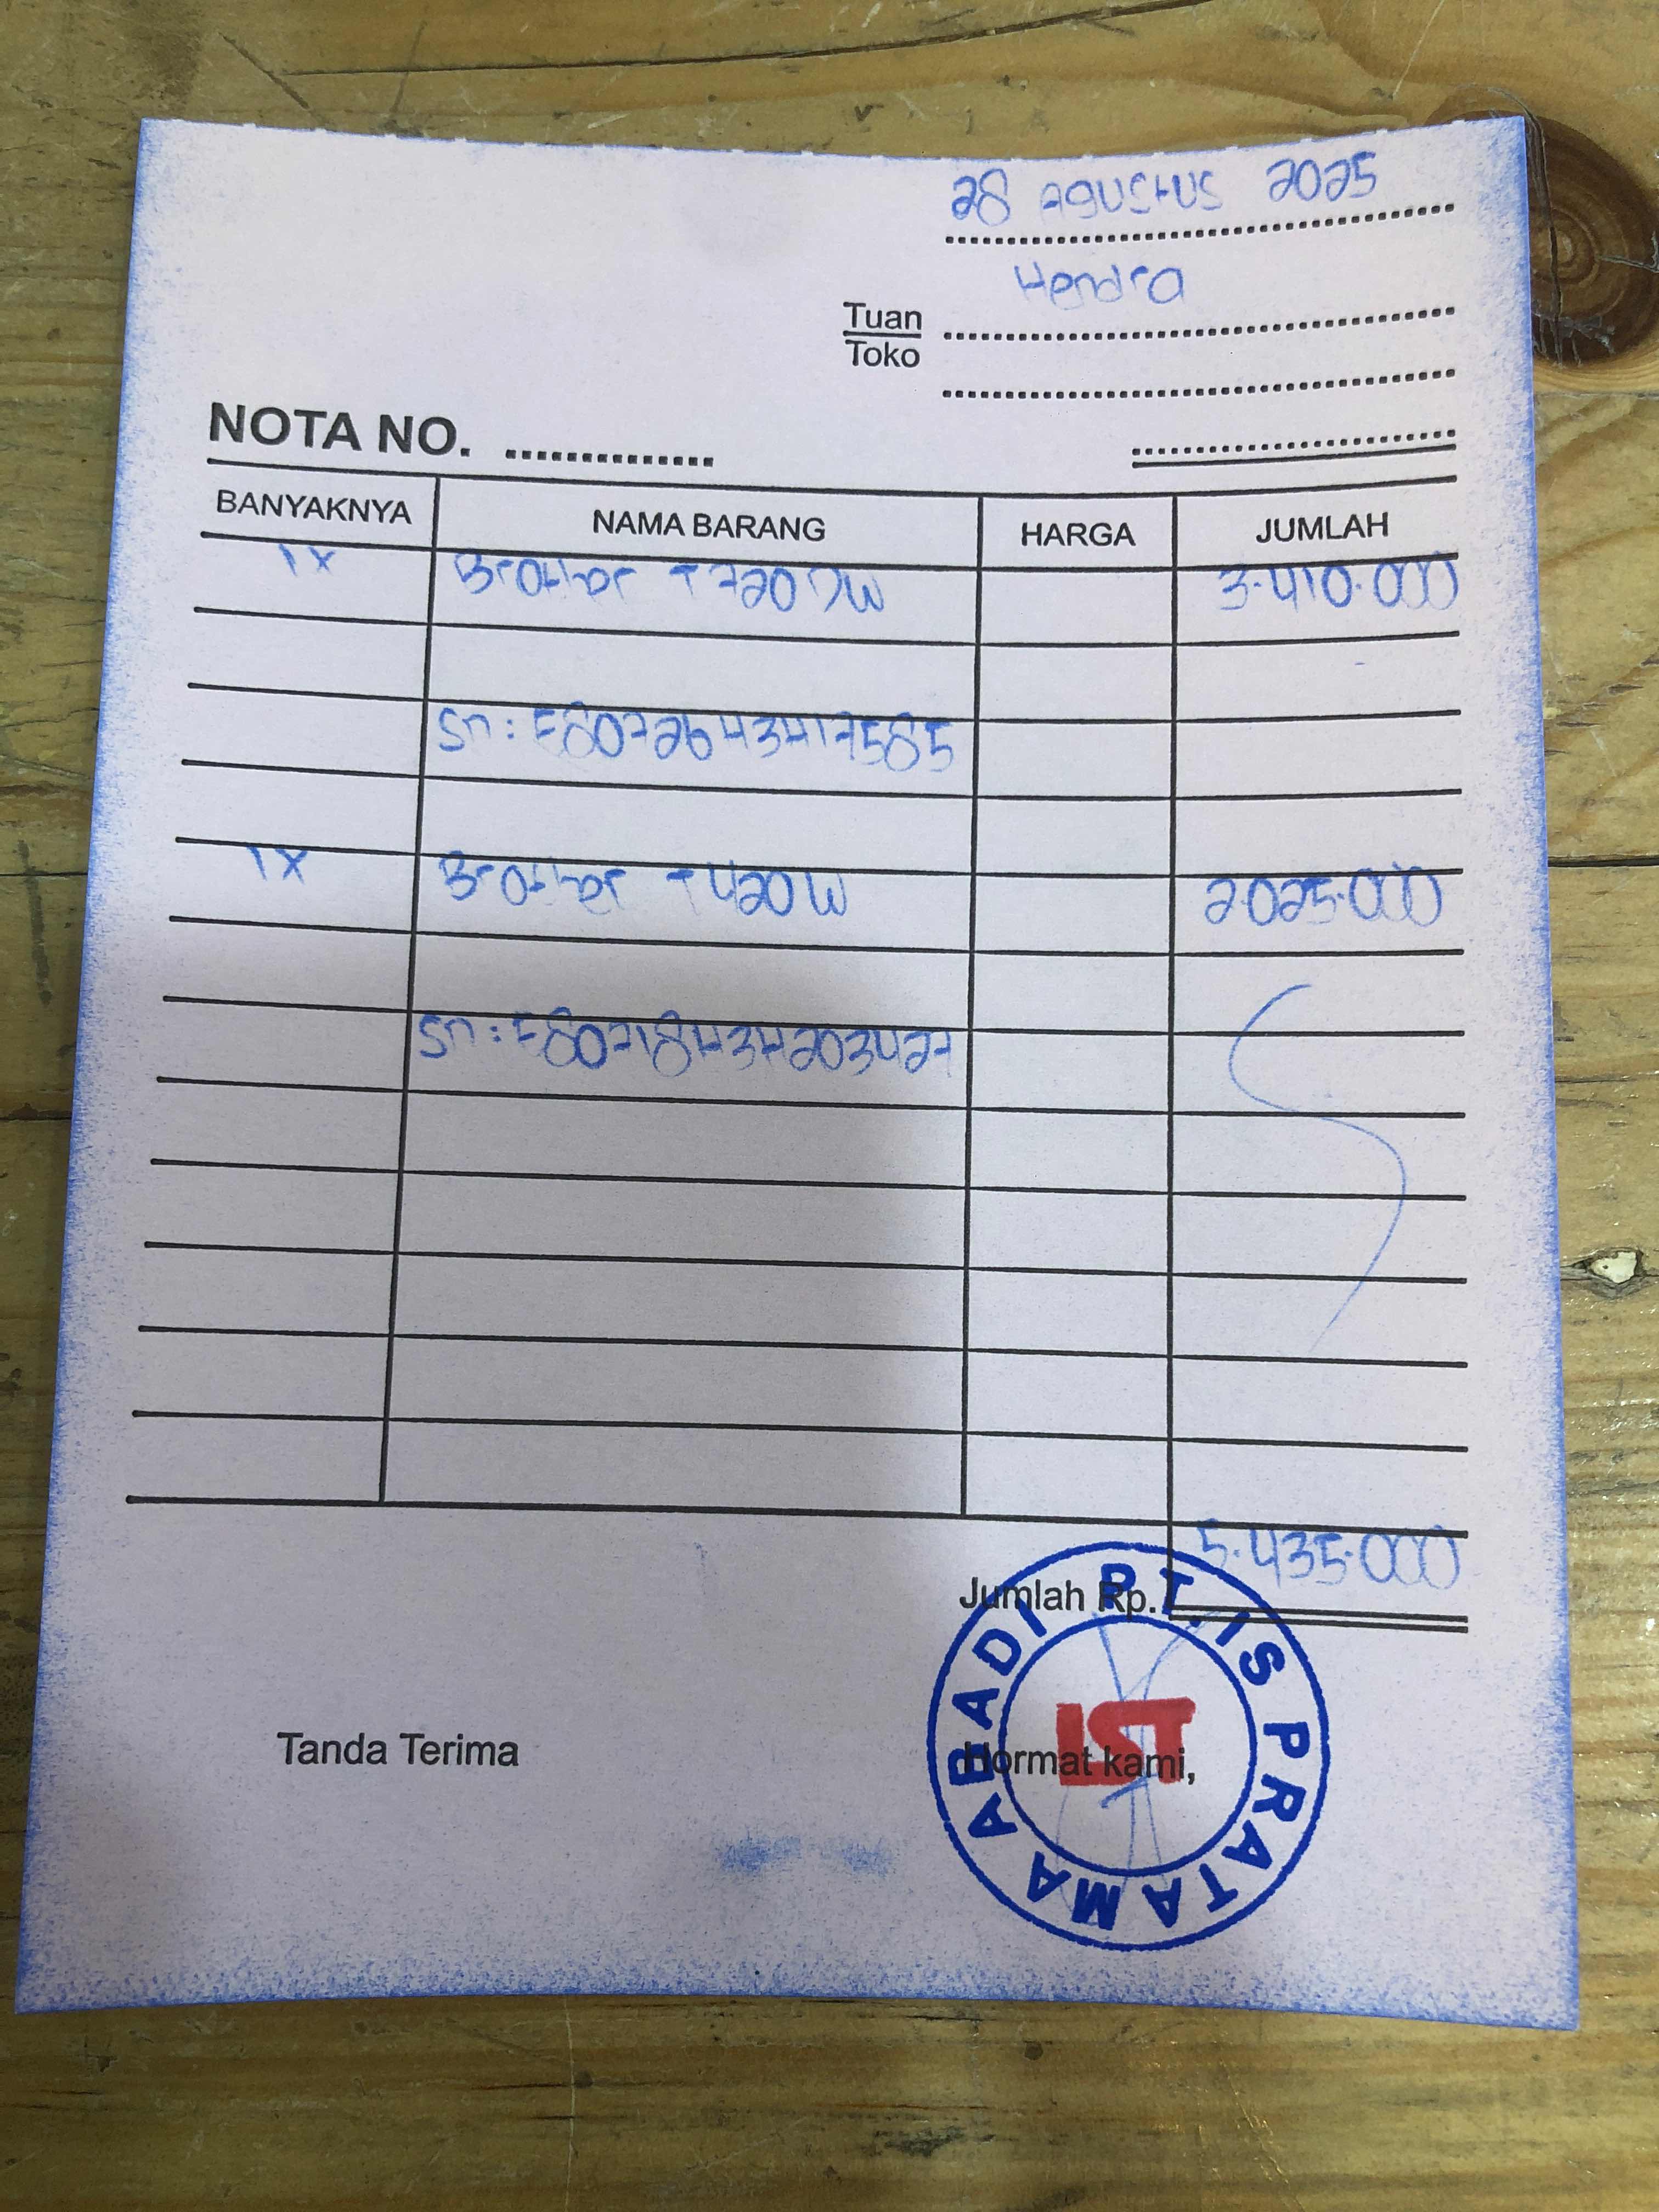 28 Agustus 2025
Hendra
Tuan
Toko
NOTA NO.
BANYAKNYA NAMA BARANG HARGA JUMLAH
1x Brother T720DW 3.410.000
Sn: E80726H3H17585
1x Brother T420W 2.025.000
Sn: E80718H3H203427
5.435.000
Jumlah Rp.
Tanda Terima
Hormat kami,
P.T. IS PRATAMA ABADI
IST